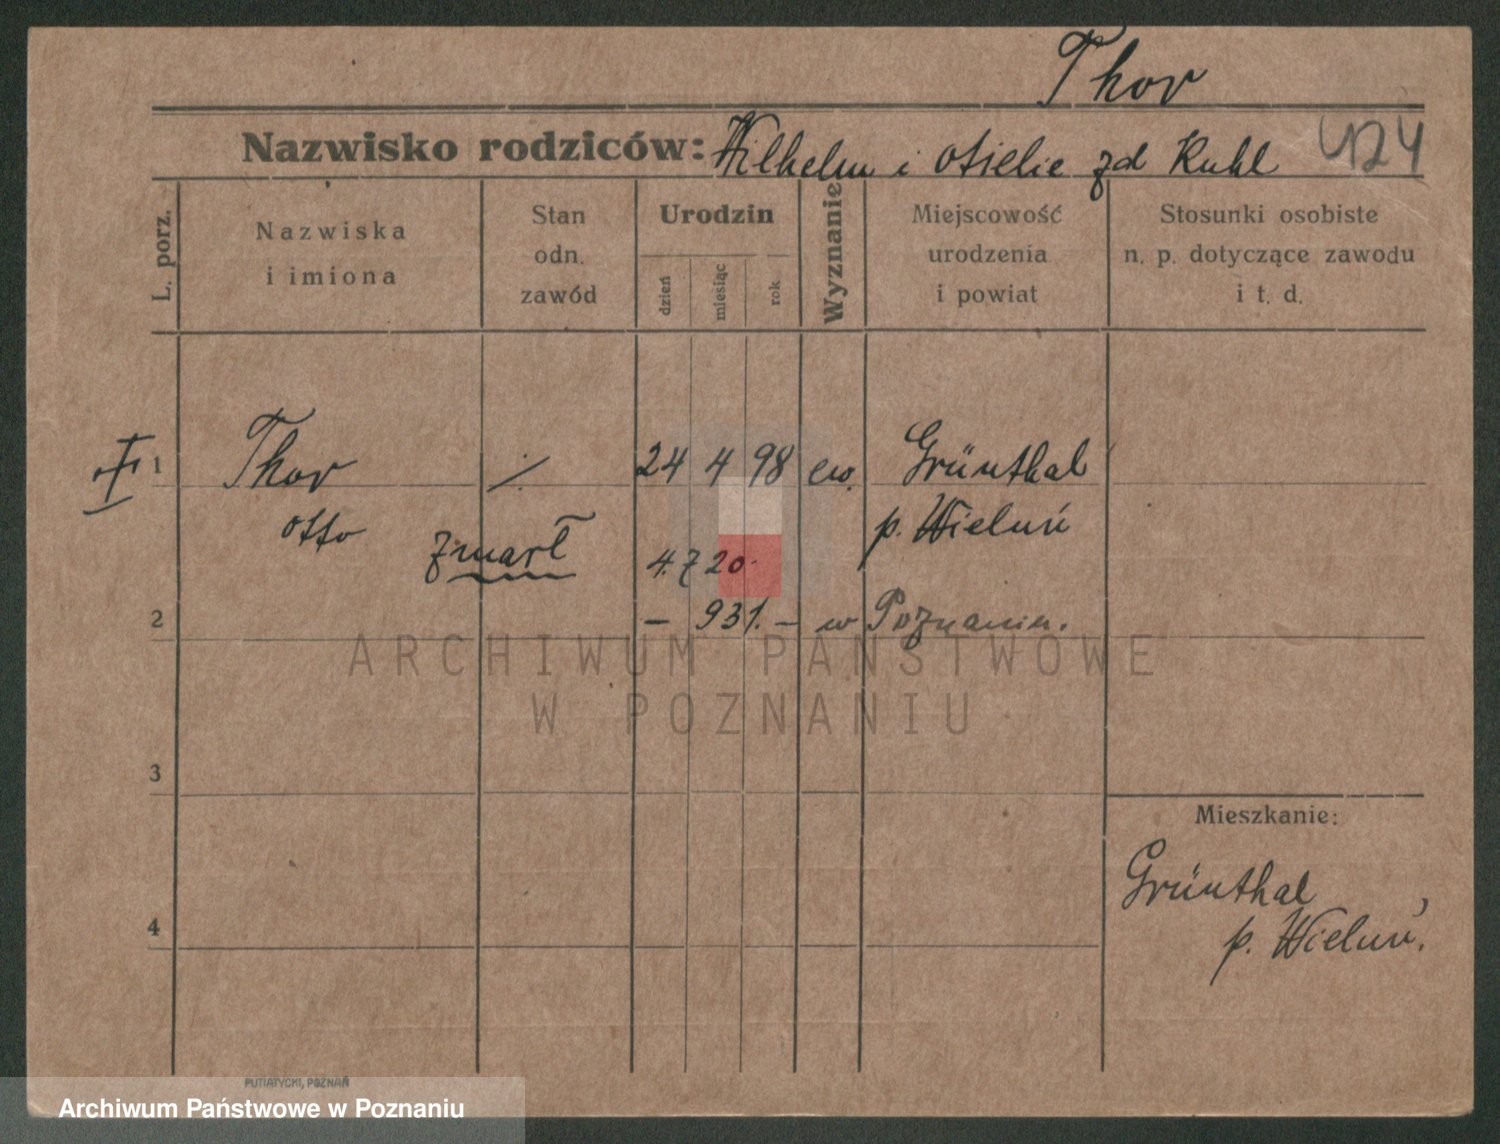 Thor
Nazwisko rodziców: Wilhelm i Otielie zd Kuhl 424
L. porz.
Nazwiska
i imiona
Stan
odn.
zawód
Urodzin
dzień
miesiąc
rok
Wyznanie
Miejscowość
urodzenia
i powiat
Stosunki osobiste
n. p. dotyczące zawodu
i t. d.
1 Thor ./. 24 4 98 ew. Grünthal
Otto p. Wieluń
zmarł 4. 7 20.
2 – 931. – w Poznaniu.
ARCHIWUM PAŃSTWOWE
W POZNANIU
3
Mieszkanie:
Grünthal,
4 p. Wieluń.
PUTIATYCKI, POZNAŃ
Archiwum Państwowe w Poznaniu